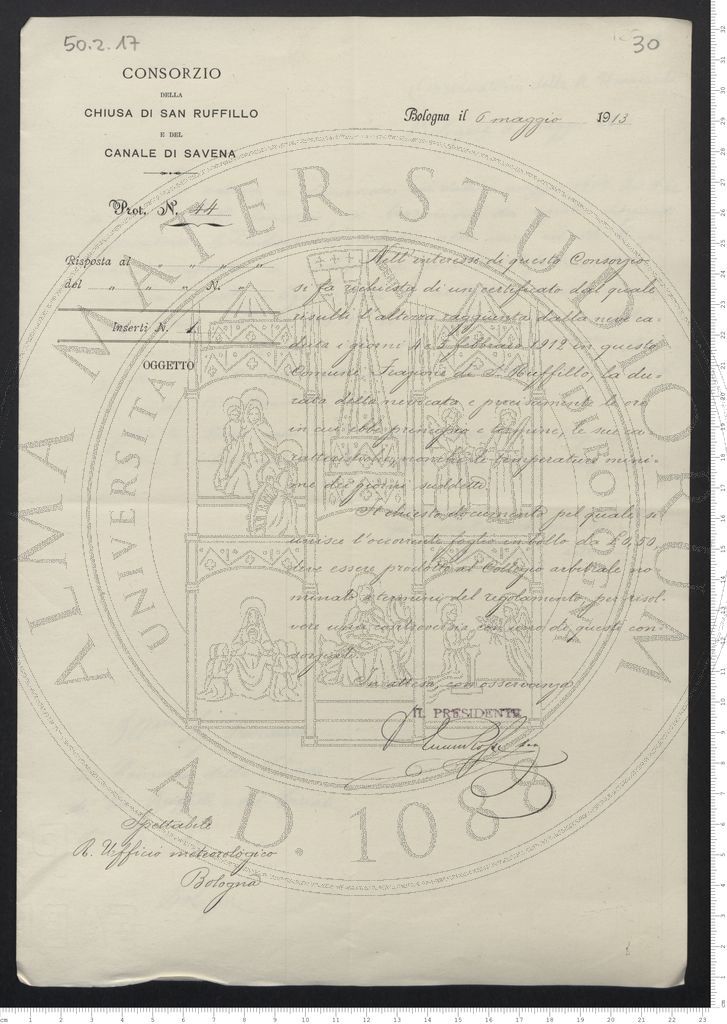 50.2.17
30
CONSORZIO
DELLA
CHIUSA DI SAN RUFFILLO
E DEL
CANALE DI SAVENA
Bologna il 6 maggio 1913
Prot. N. 44
Risposta al " " " "
del " " " N. "
Inserti N. 1
OGGETTO
Nell'interesse di questo Consorzio
si fa richiesta di un certificato dal quale
risulti l'altezza raggiunta dalla neve ca-
duta i giorni 4 e 5 febbraio 1912 in questo
Comune Frazione di S. Ruffillo, la du-
rata della nevicata e precisamente le ore
in cui ebbe principio e termine, le sue ca-
ratteristiche, nonché le temperature mini-
me dei giorni suddetti.
Il chiesto documento pel quale si
unisce l'occorrente foglio in bollo da £ 0,50,
deve essere prodotto al Collegio arbitrale no-
minato a termini del regolamento, per risol-
vere una controversia con uno di questi con-
sorziati.
In attesa, con osservanza
IL PRESIDENTE
Spettabile
R. Ufficio meteorologico
Bologna
ALMA MATER STUDIORUM
UNIVERSITA DI BOLOGNA
A.D. 1088
cm 1 2 3 4 5 6 7 8 9 10 11 12 13 14 15 16 17 18 19 20 21 22 23